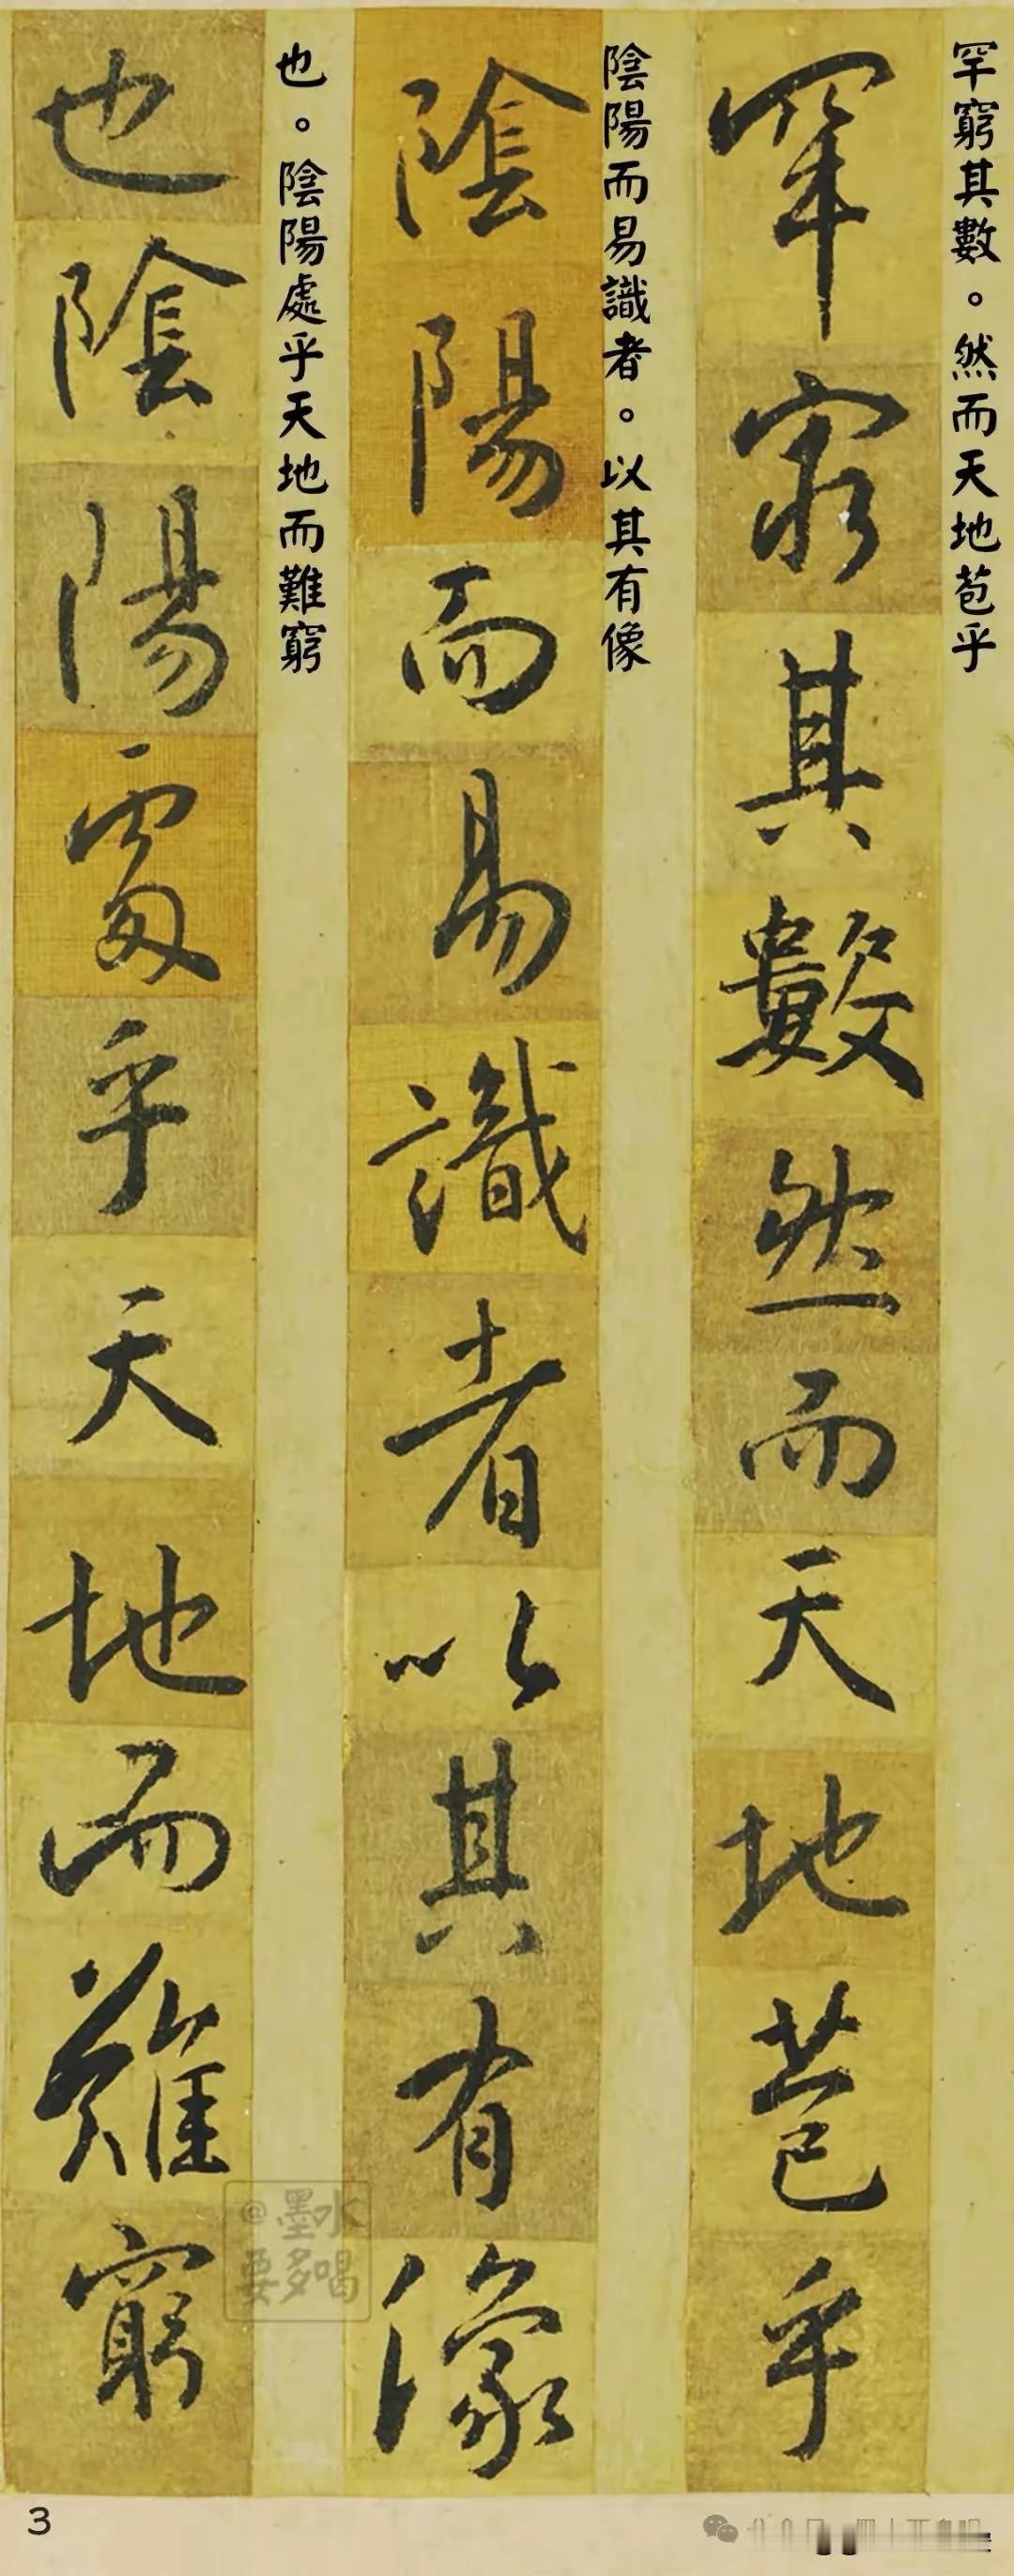 罕窮其數。然而天地苞乎
罕窮其數然而天地苞乎
陰陽而易識者。以其有像
陰陽而易識者以其有像
也。陰陽處乎天地而難窮
也陰陽處乎天地而難窮
@墨水
要多喝
3